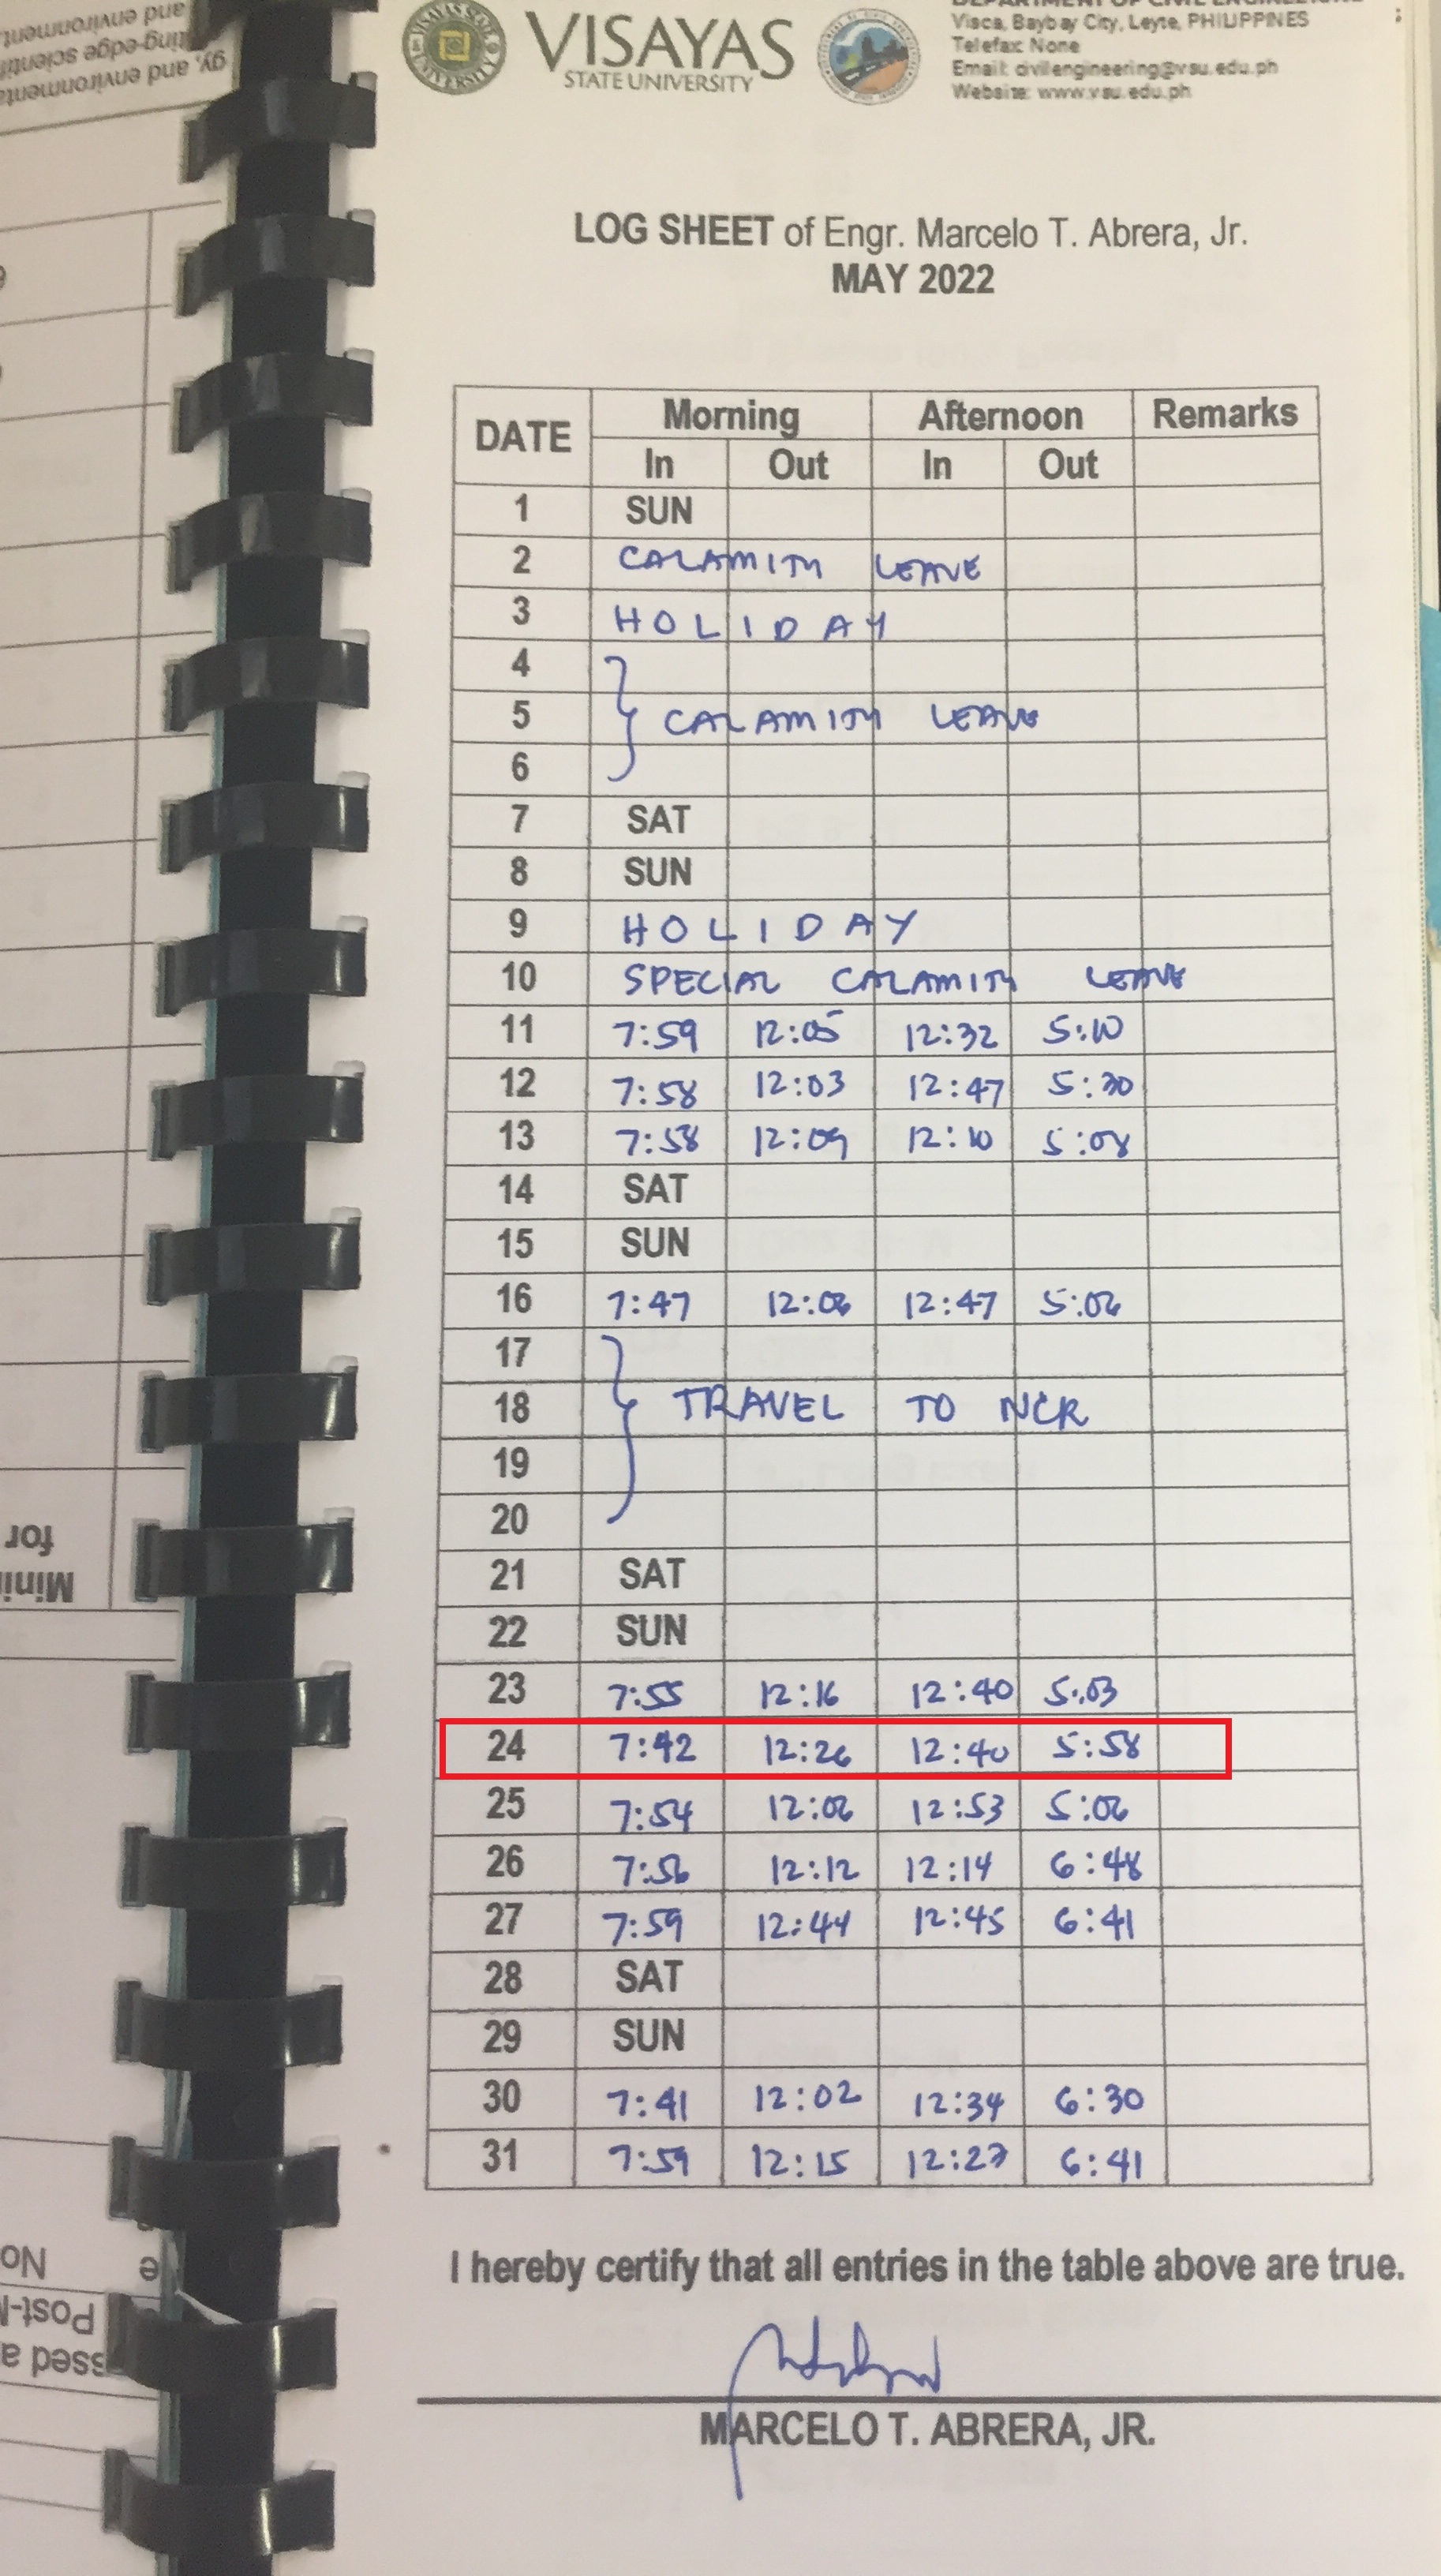 VISAYAS
STATE UNIVERSITY
DEPARTMENT OF CIVIL ENGINEERING
Visca, Baybay City, Leyte, PHILIPPINES
Telefax: None
Email: civilengineering@vsu.edu.ph
Website: www.vsu.edu.ph
LOG SHEET of Engr. Marcelo T. Abrera, Jr.
MAY 2022
DATE Morning Afternoon Remarks
In Out In Out
1 SUN
2 CALAMITY LEAVE
3 HOLIDAY
4
5 CALAMITY LEAVE
6
7 SAT
8 SUN
9 HOLIDAY
10 SPECIAL CALAMITY LEAVE
11 7:59 12:05 12:32 5:10
12 7:58 12:03 12:47 5:30
13 7:58 12:09 12:10 5:08
14 SAT
15 SUN
16 7:47 12:06 12:47 5:06
17
18 TRAVEL TO NCR
19
20
21 SAT
22 SUN
23 7:55 12:16 12:40 5:03
24 7:42 12:26 12:40 5:58
25 7:54 12:06 12:53 5:06
26 7:56 12:12 12:14 6:48
27 7:59 12:44 12:45 6:41
28 SAT
29 SUN
30 7:41 12:02 12:34 6:30
31 7:59 12:15 12:27 6:41
I hereby certify that all entries in the table above are true.
MARCELO T. ABRERA, JR.
and environment.
ting-edge scientifi
gy, and environmenta
for
Mini
No
Post-
ssed a